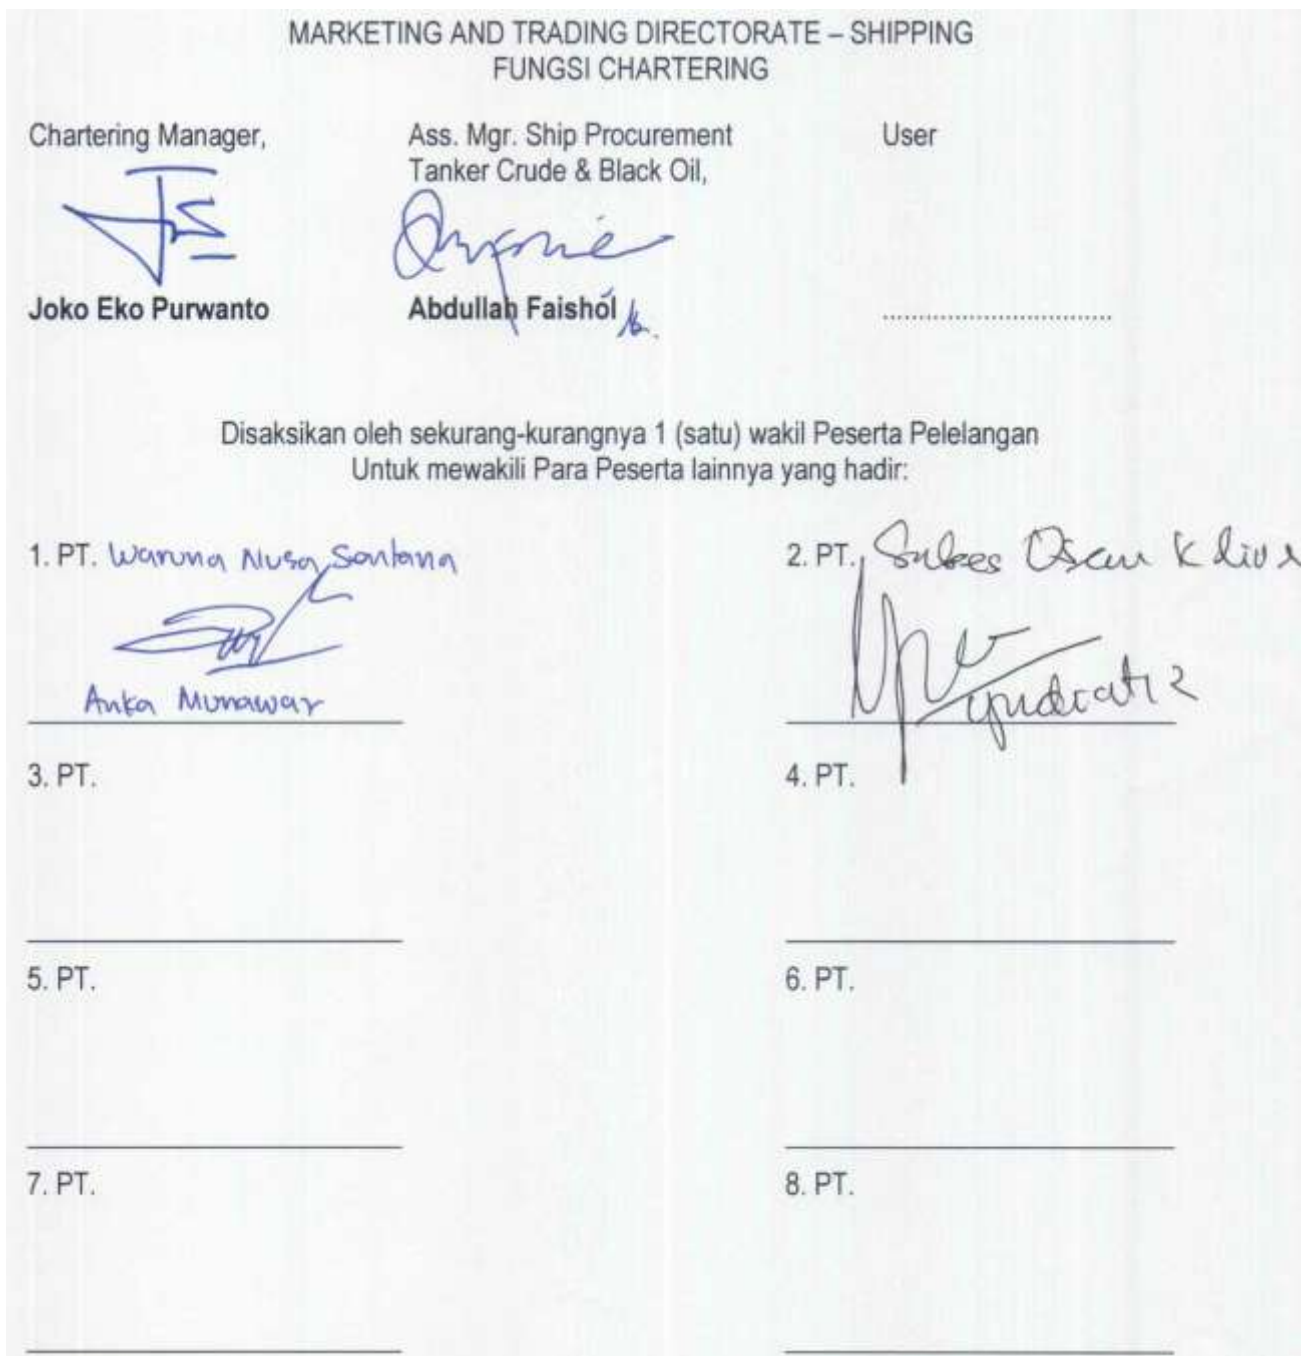 MARKETING AND TRADING DIRECTORATE – SHIPPING
FUNGSI CHARTERING
Chartering Manager,
Ass. Mgr. Ship Procurement
Tanker Crude & Black Oil,
User
Joko Eko Purwanto
Abdullah Faishol
............................
Disaksikan oleh sekurang-kurangnya 1 (satu) wakil Peserta Pelelangan
Untuk mewakili Para Peserta lainnya yang hadir:
1. PT. Waruna Nusa Sentana
Anka Munawar
2. PT.
3. PT.
4. PT.
5. PT.
6. PT.
7. PT.
8. PT.